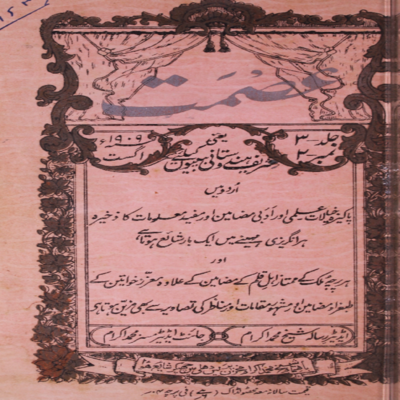 عصمت
جلد ۳
نمبر ۲
یعنی
اگست ۱۹۰۹ء
شریف ہندوستانی بیبیوں کیلئے
اردو میں
پاکیزہ خیالات علمی اور ادبی مضامین اور مفید معلومات کا ذخیرہ
ہر انگریزی مہینے میں ایک بار شائع ہوتا ہے
اور
ہر پرچہ ملک کے ممتاز اہل قلم کے مضامین کے علاوہ معزز خواتین کے
مضامین اور مشہور مقامات اور مناظر کی تصاویر سے بھی مزین ہوتا ہے
ایڈیٹر رسالہ شیخ محمد اکرام
جائنٹ ایڈیٹر مسز محمد اکرام
قیمت سالانہ مع محصول ڈاک